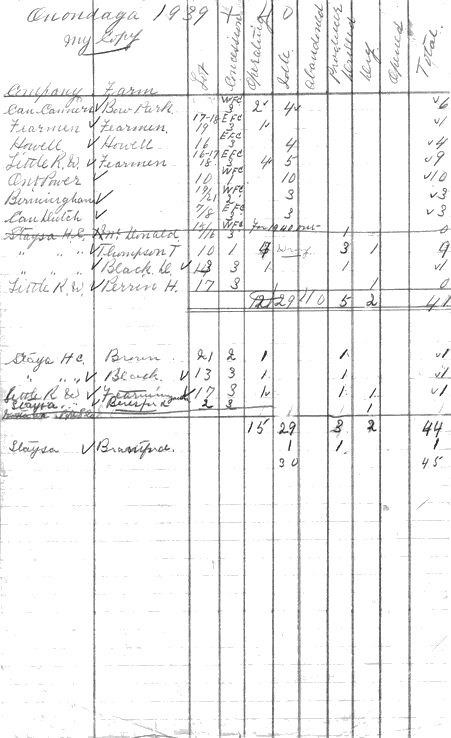 Onondaga 1939 + 40
My Copy
Company Farm Lot Concession Operating Idle Abandoned Producer Drilled Dry Opened Total
Can. Canners Bow Park WFC 3 2 4 6
Fearmen Fearmen 17-18 19 EFC 3 1 1
Howell Howell 16 EFC 3 4 4
Little R. W. Fearmen 16-17 18 EFC 3 4 5 9
Ont Power 10 1 10 10
Birmingham 19/21 WFC 2 3 3
Can Dutch 7/8 EFC 3 3 3
Staysa H.C. McDonald WFC 3 For 1940 1 0
" " " Thompson T 10 1 3 1 9
" " " Black D. 13 3 1 1 1
Little R. W. Perrin H. 17 3 1 0
29 0 5 2 41
Staysa H C. Brown 21 2 1 1 1
" " " Black 13 3 1 1 1
Little R & W 17 3 1 1 1 1
Staysa " " Beresford 2 3 1
15 29 3 2 44
Staysa Brantford 1 1 1
30 45